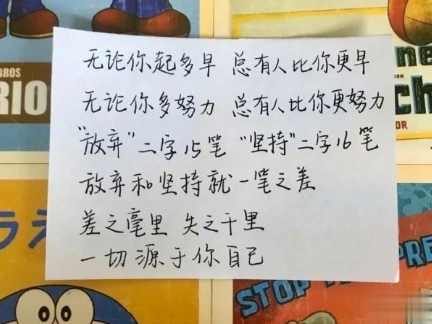 无论你起多早 总有人比你更早
无论你多努力 总有人比你更努力
"放弃"二字15笔 "坚持"二字16笔
放弃和坚持就一笔之差
差之毫里 失之千里
一切源于你自己
BROS
RIO
ne
ch
OR
うえ